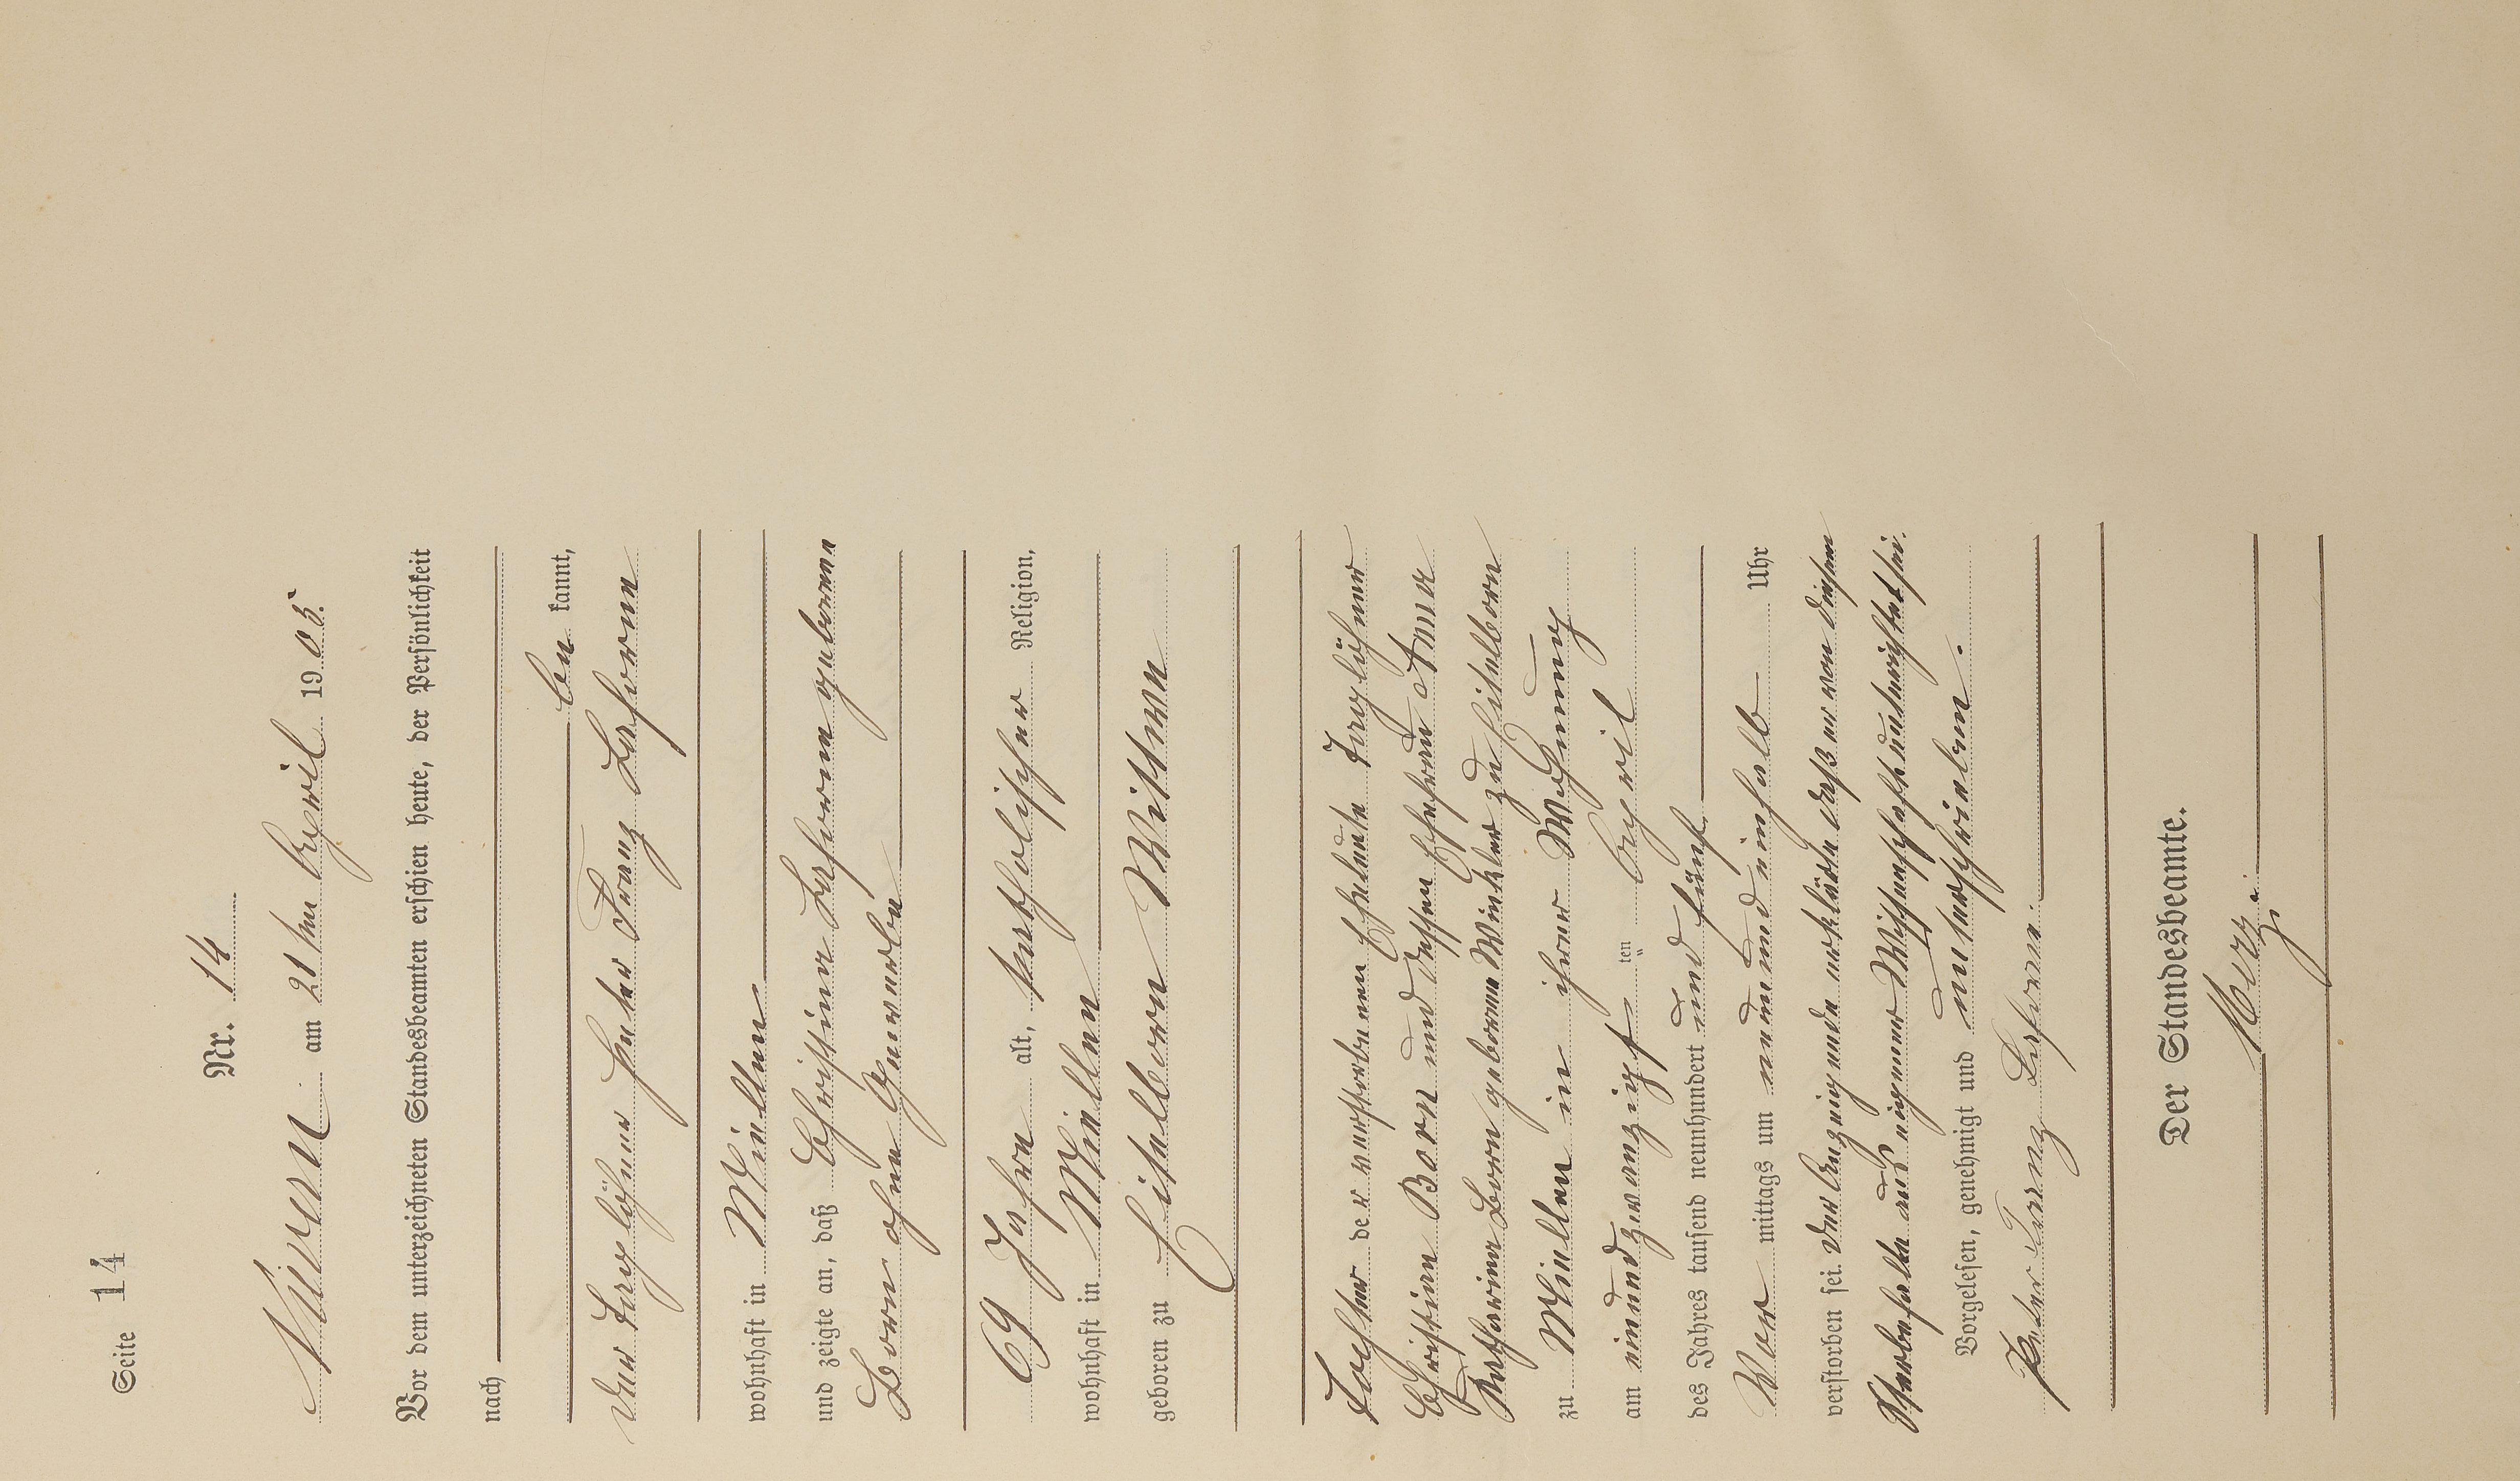 Seite 14
Nr. 14
Nievern am 21ten April 1905.
Vor dem unterzeichneten Standesbeamten erschien heute, der Persönlichkeit
nach
be kannt,
der Taglöhner Peter Franz
wohnhaft in Miellen
und zeigte an, daß Christina geborene
Born ohne Gewerbe
69 Jahre alt, katholischer Religion,
wohnhaft in Miellen
geboren zu Eitelborn Witwe
Tochter der verstorbenen Eheleute Taglöhner
Christian Born und dessen Ehefrau Anna
Katharina Born geborene Winkler zu Eitelborn
zu Miellen in ihrer Wohnung
am einundzwanzigsten April
des Jahres tausend neunhundert und fünf
Vor mittags um neunundeinhalb Uhr
verstorben sei. Der Anzeigende erklärte daß er von diesem
Sterbefalle aus eigener Wissenschaft unterrichtet sei.
Vorgelesen, genehmigt und unterschrieben.
Peter Franz
Der Standesbeamte.